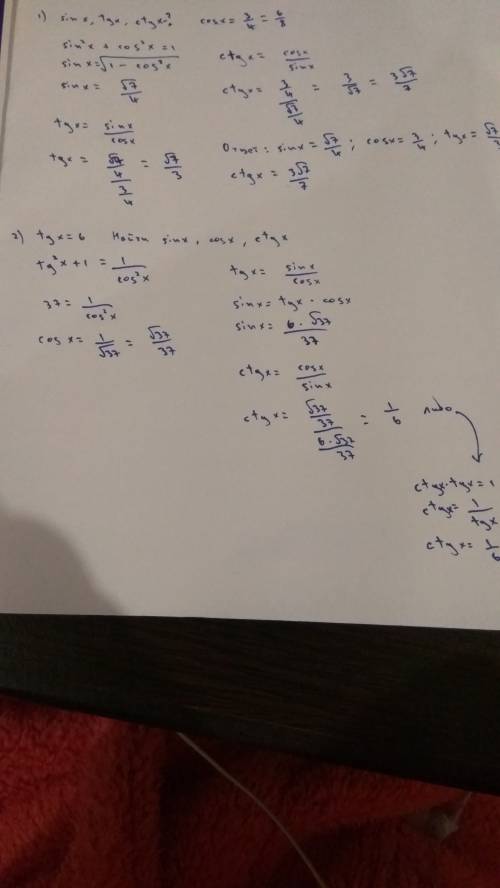 1) sinx, tgx, ctgx? cosx = 3/4 = 6/8
sin²x + cos²x = 1
sinx = √(1 - cos²x)
sinx = √7/4
tgx = sinx/cosx
tgx = (√7/4)/(3/4) = √7/3
ctgx = cosx/sinx
ctgx = (3/4)/(√7/4) = 3/√7 = 3√7/7
Ответ: sinx = √7/4; cosx = 3/4; tgx = √7/
ctgx = 3√7/7
2) tgx = 6 Найти sinx, cosx, ctgx
tg²x + 1 = 1/cos²x
37 = 1/cos²x
cosx = 1/√37 = √37/37
tgx = sinx/cosx
sinx = tgx · cosx
sinx = 6·√37/37
ctgx = cosx/sinx
ctgx = (√37/37)/(6·√37/37) = 1/6 либо
ctgx·tgx = 1
ctgx = 1/tgx
ctgx = 1/6